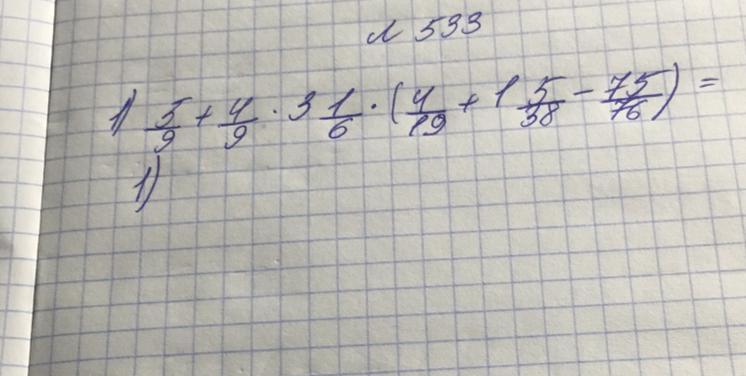 № 533
1) 5/9 + 4/9 · 3 1/6 · (4/19 + 1 5/38 − 75/76) =
1)